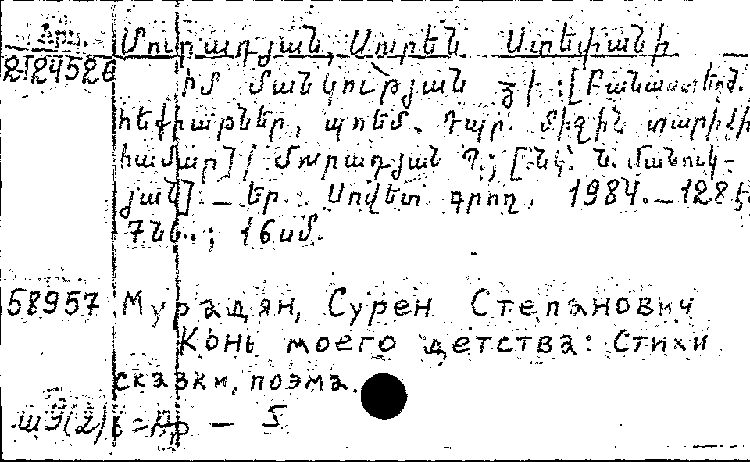 Մուրադյան, Սուրեն Ստեփանի
2124526 Իմ մանկության ձի :[Բանաստեղծ.
հեքիաթներ, պոեմ. Դպր. միջին տարիքի
համար] / Մուրադյան Ս.; [նկ. Ն. Մանուկ-
յան]. _ Եր.: Սովետ. գրող, 1984. _ 128 էջ
7նկ.; 16սմ.
58957 Мурадян, Сурен Степанович
Конь моего детства: Стихи
сказки, поэма.
Ар — 5